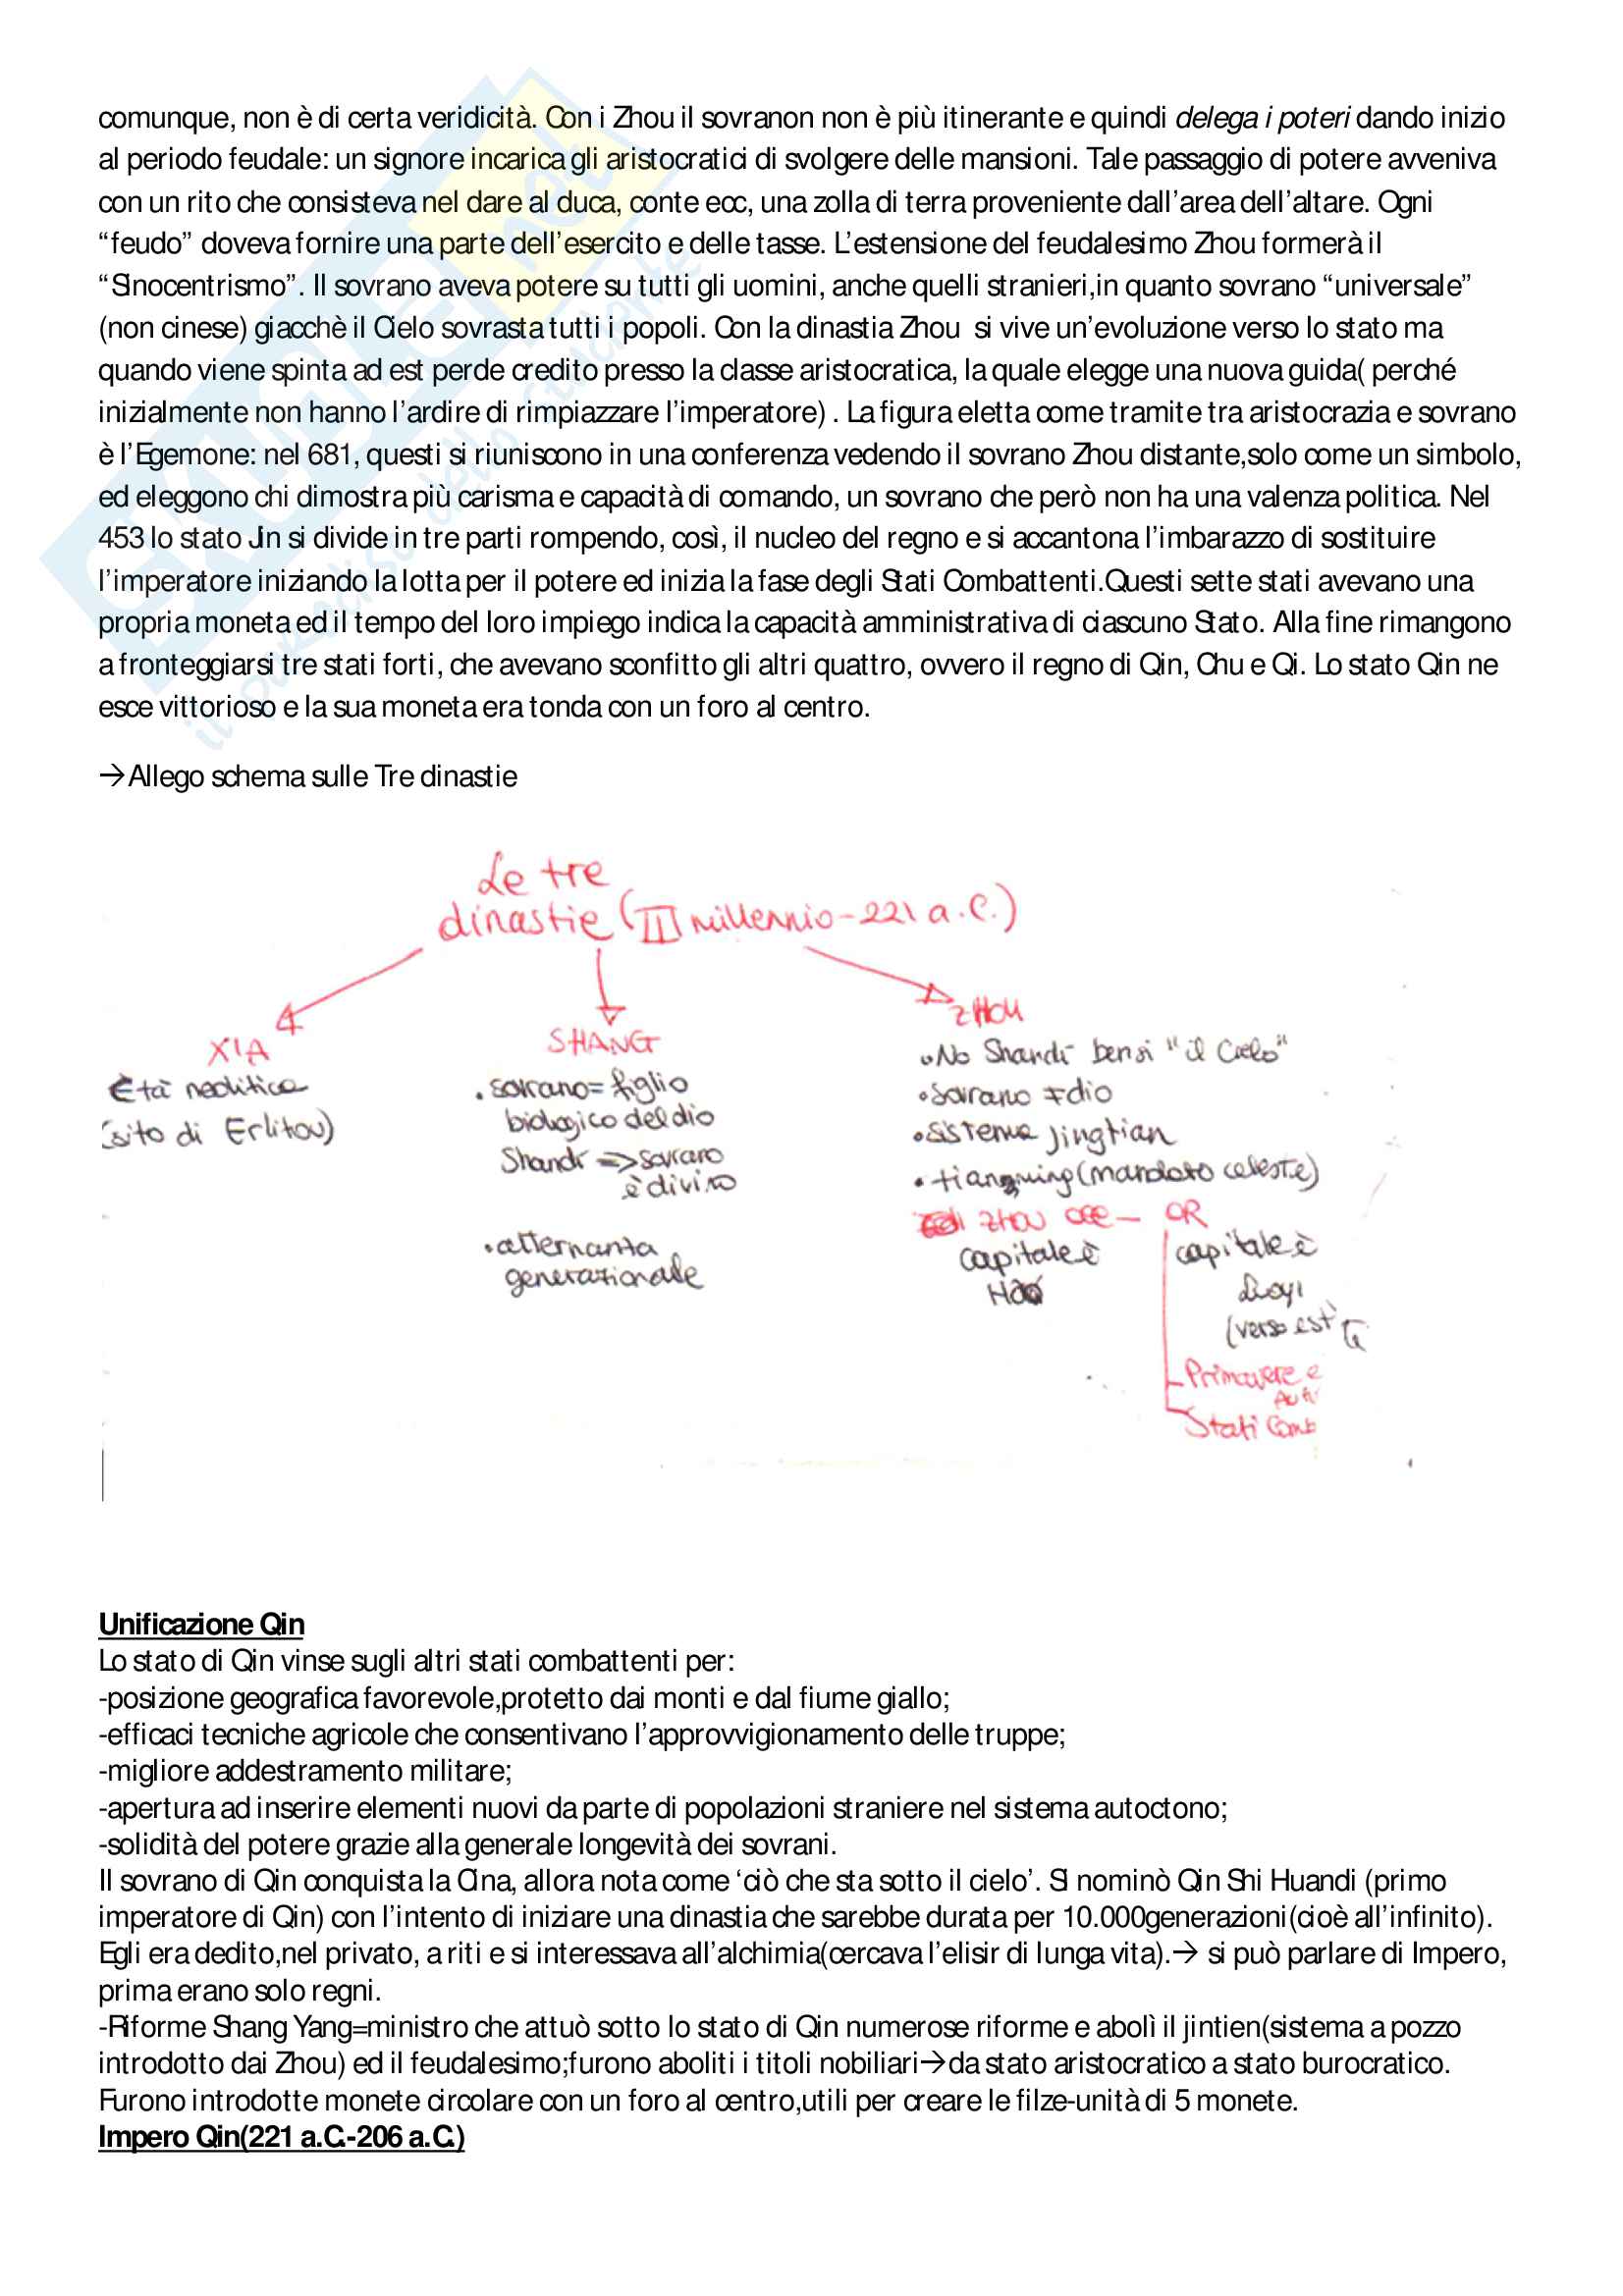 comunque, non è di certa veridicità. Con i Zhou il sovranon non è più itinerante e quindi delega i poteri dando inizio
al periodo feudale: un signore incarica gli aristocratici di svolgere delle mansioni. Tale passaggio di potere avveniva
con un rito che consisteva nel dare al duca, conte ecc, una zolla di terra proveniente dall’area dell’altare. Ogni
“feudo” doveva fornire una parte dell’esercito e delle tasse. L’estensione del feudalesimo Zhou formerà il
“Sinocentrismo”. Il sovrano aveva potere su tutti gli uomini, anche quelli stranieri,in quanto sovrano “universale”
(non cinese) giacchè il Cielo sovrasta tutti i popoli. Con la dinastia Zhou si vive un’evoluzione verso lo stato ma
quando viene spinta ad est perde credito presso la classe aristocratica, la quale elegge una nuova guida( perché
inizialmente non hanno l’ardire di rimpiazzare l’imperatore) . La figura eletta come tramite tra aristocrazia e sovrano
è l’Egemone: nel 681, questi si riuniscono in una conferenza vedendo il sovrano Zhou distante,solo come un simbolo,
ed eleggono chi dimostra più carisma e capacità di comando, un sovrano che però non ha una valenza politica. Nel
453 lo stato Jin si divide in tre parti rompendo, così, il nucleo del regno e si accantona l’imbarazzo di sostituire
l’imperatore iniziando la lotta per il potere ed inizia la fase degli Stati Combattenti.Questi sette stati avevano una
propria moneta ed il tempo del loro impiego indica la capacità amministrativa di ciascuno Stato. Alla fine rimangono
a fronteggiarsi tre stati forti, che avevano sconfitto gli altri quattro, ovvero il regno di Qin, Chu e Qi. Lo stato Qin ne
esce vittorioso e la sua moneta era tonda con un foro al centro.
→Allego schema sulle Tre dinastie
Le tre
dinastie (II millennio-221 a.C.)
XIA
Età neolitica
(sito di Erlitou)
SHANG
• sovrano= figlio
biologico del dio
Shandi => sovrano
è divino
• alternanza
generazionale
ZHOU
• No Shandi bensì "il Cielo"
• Sovrano ≠ dio
• sistema jingtian
• tianming (mandato celeste)
ZHOU OCC — OR
capitale è
capitale è
(verso est
Primavere e
Stati Comb
Unificazione Qin
Lo stato di Qin vinse sugli altri stati combattenti per:
-posizione geografica favorevole,protetto dai monti e dal fiume giallo;
-efficaci tecniche agricole che consentivano l’approvvigionamento delle truppe;
-migliore addestramento militare;
-apertura ad inserire elementi nuovi da parte di popolazioni straniere nel sistema autoctono;
-solidità del potere grazie alla generale longevità dei sovrani.
Il sovrano di Qin conquista la Cina, allora nota come ‘ciò che sta sotto il cielo’. Si nominò Qin Shi Huandi (primo
imperatore di Qin) con l’intento di iniziare una dinastia che sarebbe durata per 10.000generazioni(cioè all’infinito).
Egli era dedito,nel privato, a riti e si interessava all’alchimia(cercava l’elisir di lunga vita).→ si può parlare di Impero,
prima erano solo regni.
-Riforme Shang Yang=ministro che attuò sotto lo stato di Qin numerose riforme e abolì il jintien(sistema a pozzo
introdotto dai Zhou) ed il feudalesimo;furono aboliti i titoli nobiliari→da stato aristocratico a stato burocratico.
Furono introdotte monete circolare con un foro al centro,utili per creare le filze-unità di 5 monete.
Impero Qin(221 a.C.-206 a.C.)